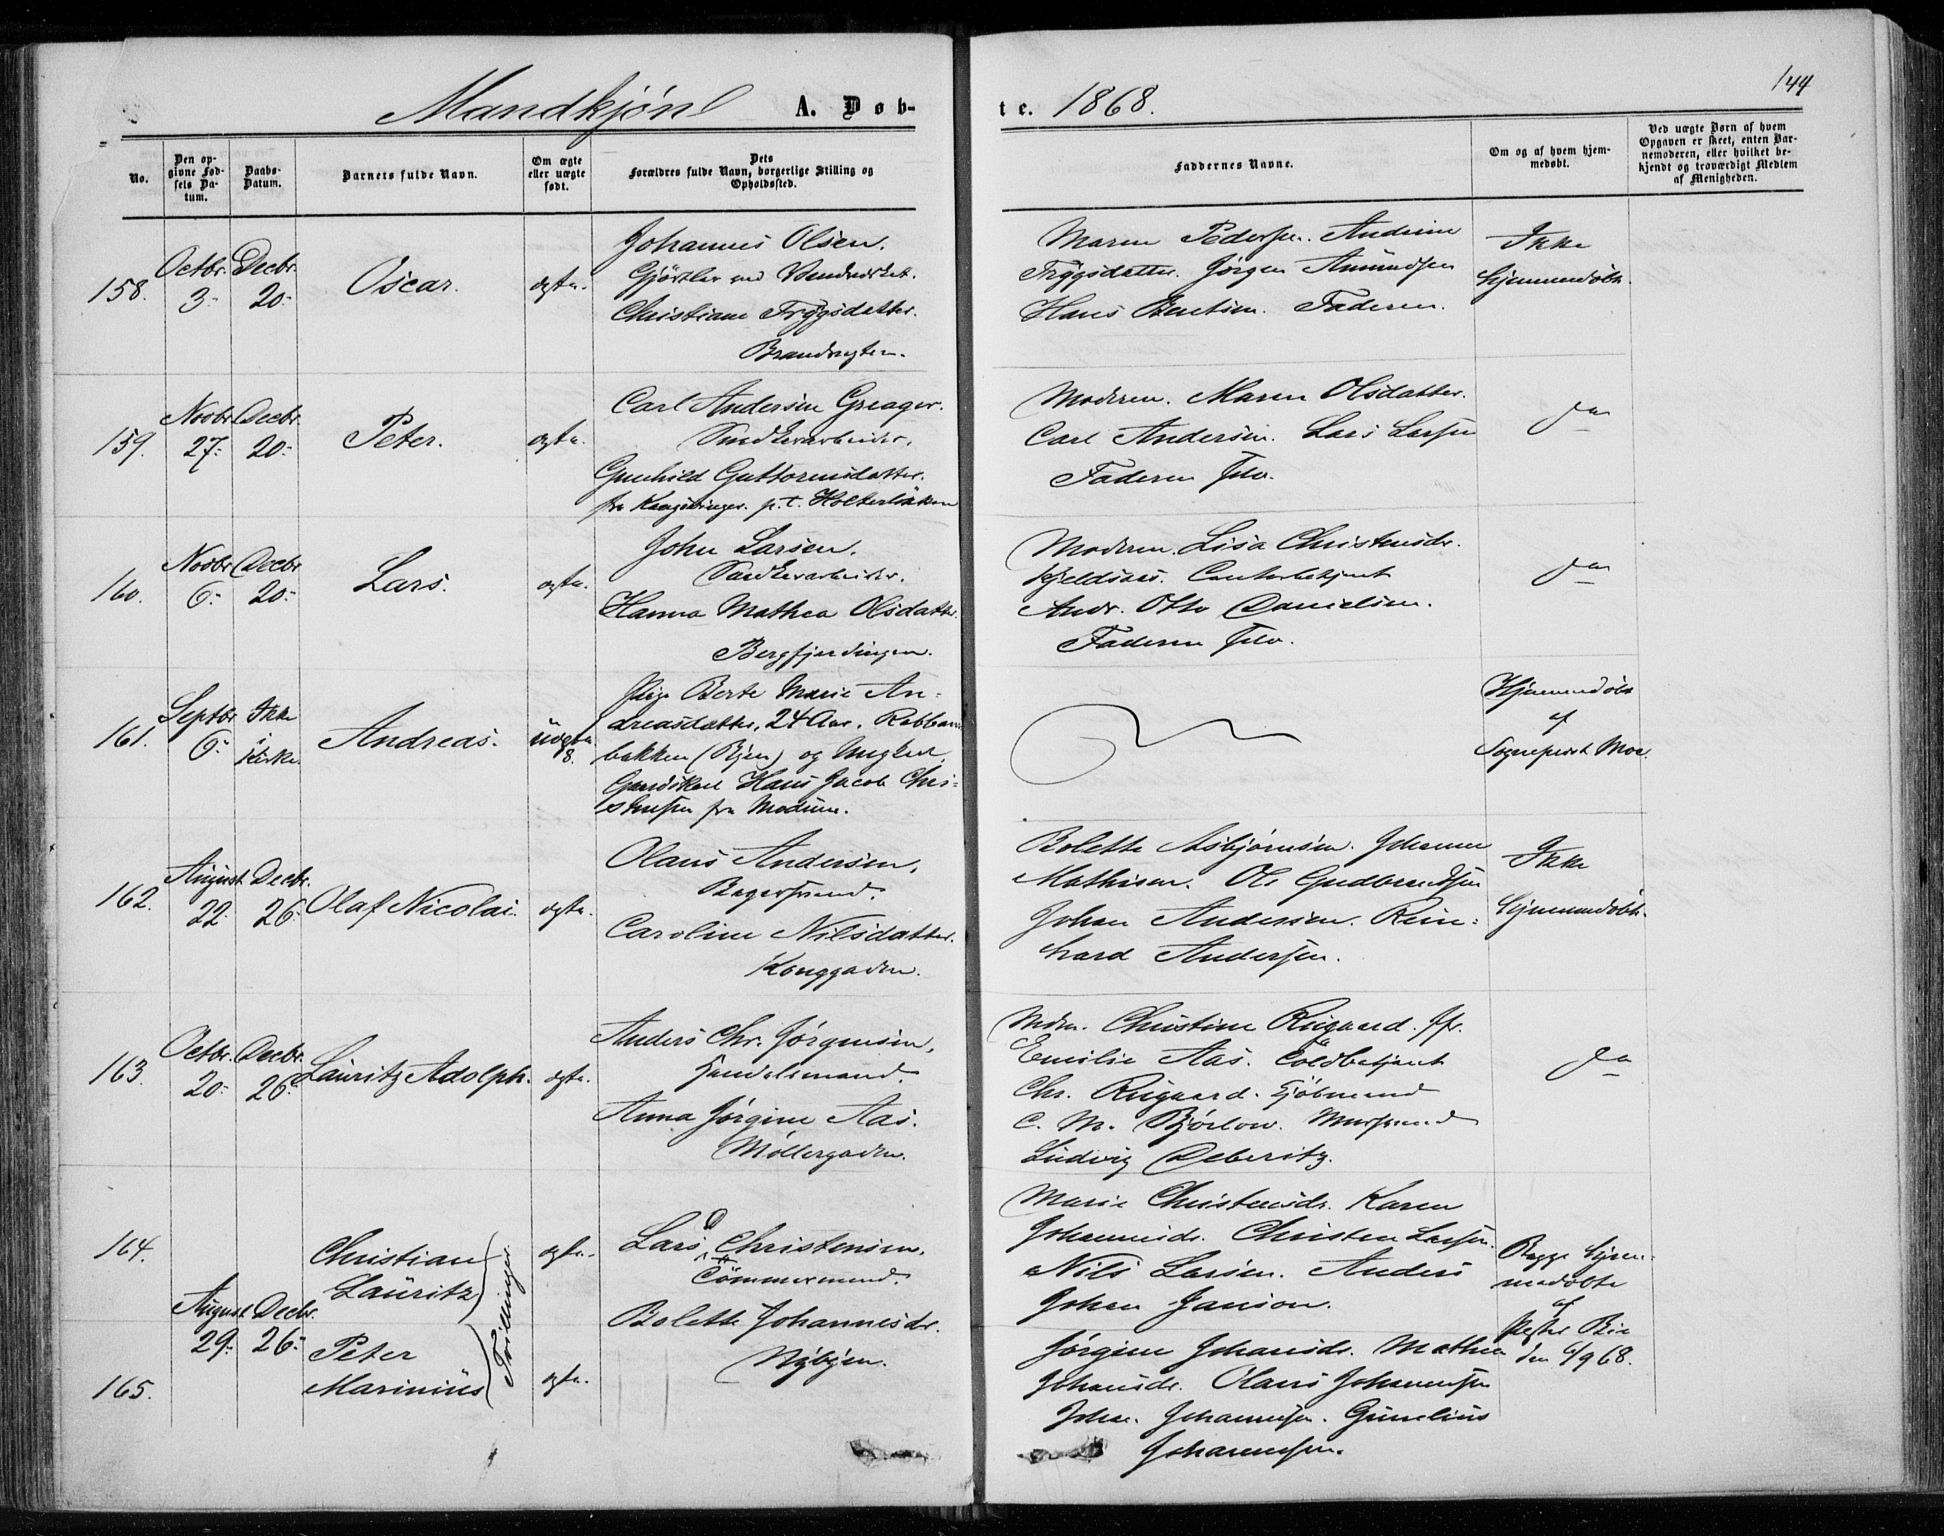 144
Mandkjøn A. Døb-
te. 1868.
No.
Den op-
givne Fød-
sels Da-
tum.
Daabs-
Datum.
Barnets fulde Navn.
Om ægte
eller uægte
født.
Dets
Forældres fulde Navn, borgerlige Stilling og
Opholdssted.
Faddernes Navne.
Om og af hvem hjem-
medøbt.
Ved uægte Børn af hvem
Opgaven er skeet, enten Bar-
nemoderen, eller hvilket be-
kjendt og troværdigt Medlem
af Menigheden.
158.
Octbr.
3.
Decbr.
20.
Oscar.
ægte.
Johannes Olsen.
Gjørtler ved
Christiane Trygsdatter.
Brandvagten.
Maren Pedersen. Andrine
Trygsdatter. Jørgen Amundsen
Hans Berntsen. Faderen.
Ikke
hjemmedøbt.
159.
Novbr.
27.
Decbr.
20.
Peter.
ægte.
Carl Andersen Greager.
Snedkerarbeider.
Gunhild Guttormsdatter.
fra Kongsvinger. p.t. Holterløkken
Moderen. Maren Olsdatter.
Carl Andersen. Lars Larsen
Faderen selv.
do
160.
Novbr.
6.
Decbr.
20.
Lars.
ægte.
John Larsen.
Snedkerarbeider.
Hanna Mathea Olsdatter.
Bergfjerdingen.
Moderen. Lisa Christensdr.
Kjeldsaas. Contorbetjent
Andr. Otto Danielsen.
Faderen selv.
do
161.
Septbr.
6.
Ikke
i
Kirke.
Andreas.
uægte
8.
Pige Berte Marie An-
dreasdatter, 24 Aar,
bakken (Byen) og Ungkarl
Gaardskarl Hans Jacob Chri-
stensen fra Modum.
Hjemmedøbt
af
Sognepræst Moe.
162.
August
22.
Decbr.
26.
Olaf Nicolai.
ægte.
Olaus Andersen.
Bagersvend.
Caroline Nilsdatter.
Konggaden.
Bolette Asbjørnsen. Johanne
Mathisen. Ole Gudbrandsen
Johan Andersen. Rein-
hard Andersen.
Ikke
hjemmedøbt.
163.
Octbr.
20.
Decbr.
26.
Lauritz Adolph.
ægte.
Anders Chr. Jørgensen.
Handelsmand.
Anna Jørgine Aas.
Møllergaden.
Mdm. Christine Riigaard. Jfr.
Emilie Aas. Toldbetjent
Chr. Riigaard. Kjøbmand
C. M. Bjørlow. Mursvend
Ludvig Deberitz.
do
164.
Christian
Lauritz
ægte.
August
29.
Decbr.
26.
Tvillinger.
Lars Christensen.
Tømmermand.
Bolette Johannesdr.
Nybyen.
Marie Christensdr. Karen
Johannesdr. Christen Larsen.
Nils Larsen. Anders
Johan Janson.
Begge hjem-
medøbte
af
Pastor Bie
den 6/9 68.
165.
Peter
Marinius
ægte.
Jørgine Johansdr. Mathea
Johansdr. Olaus Johannesen
Johan Johannesen. Gunelius
Johannesen.